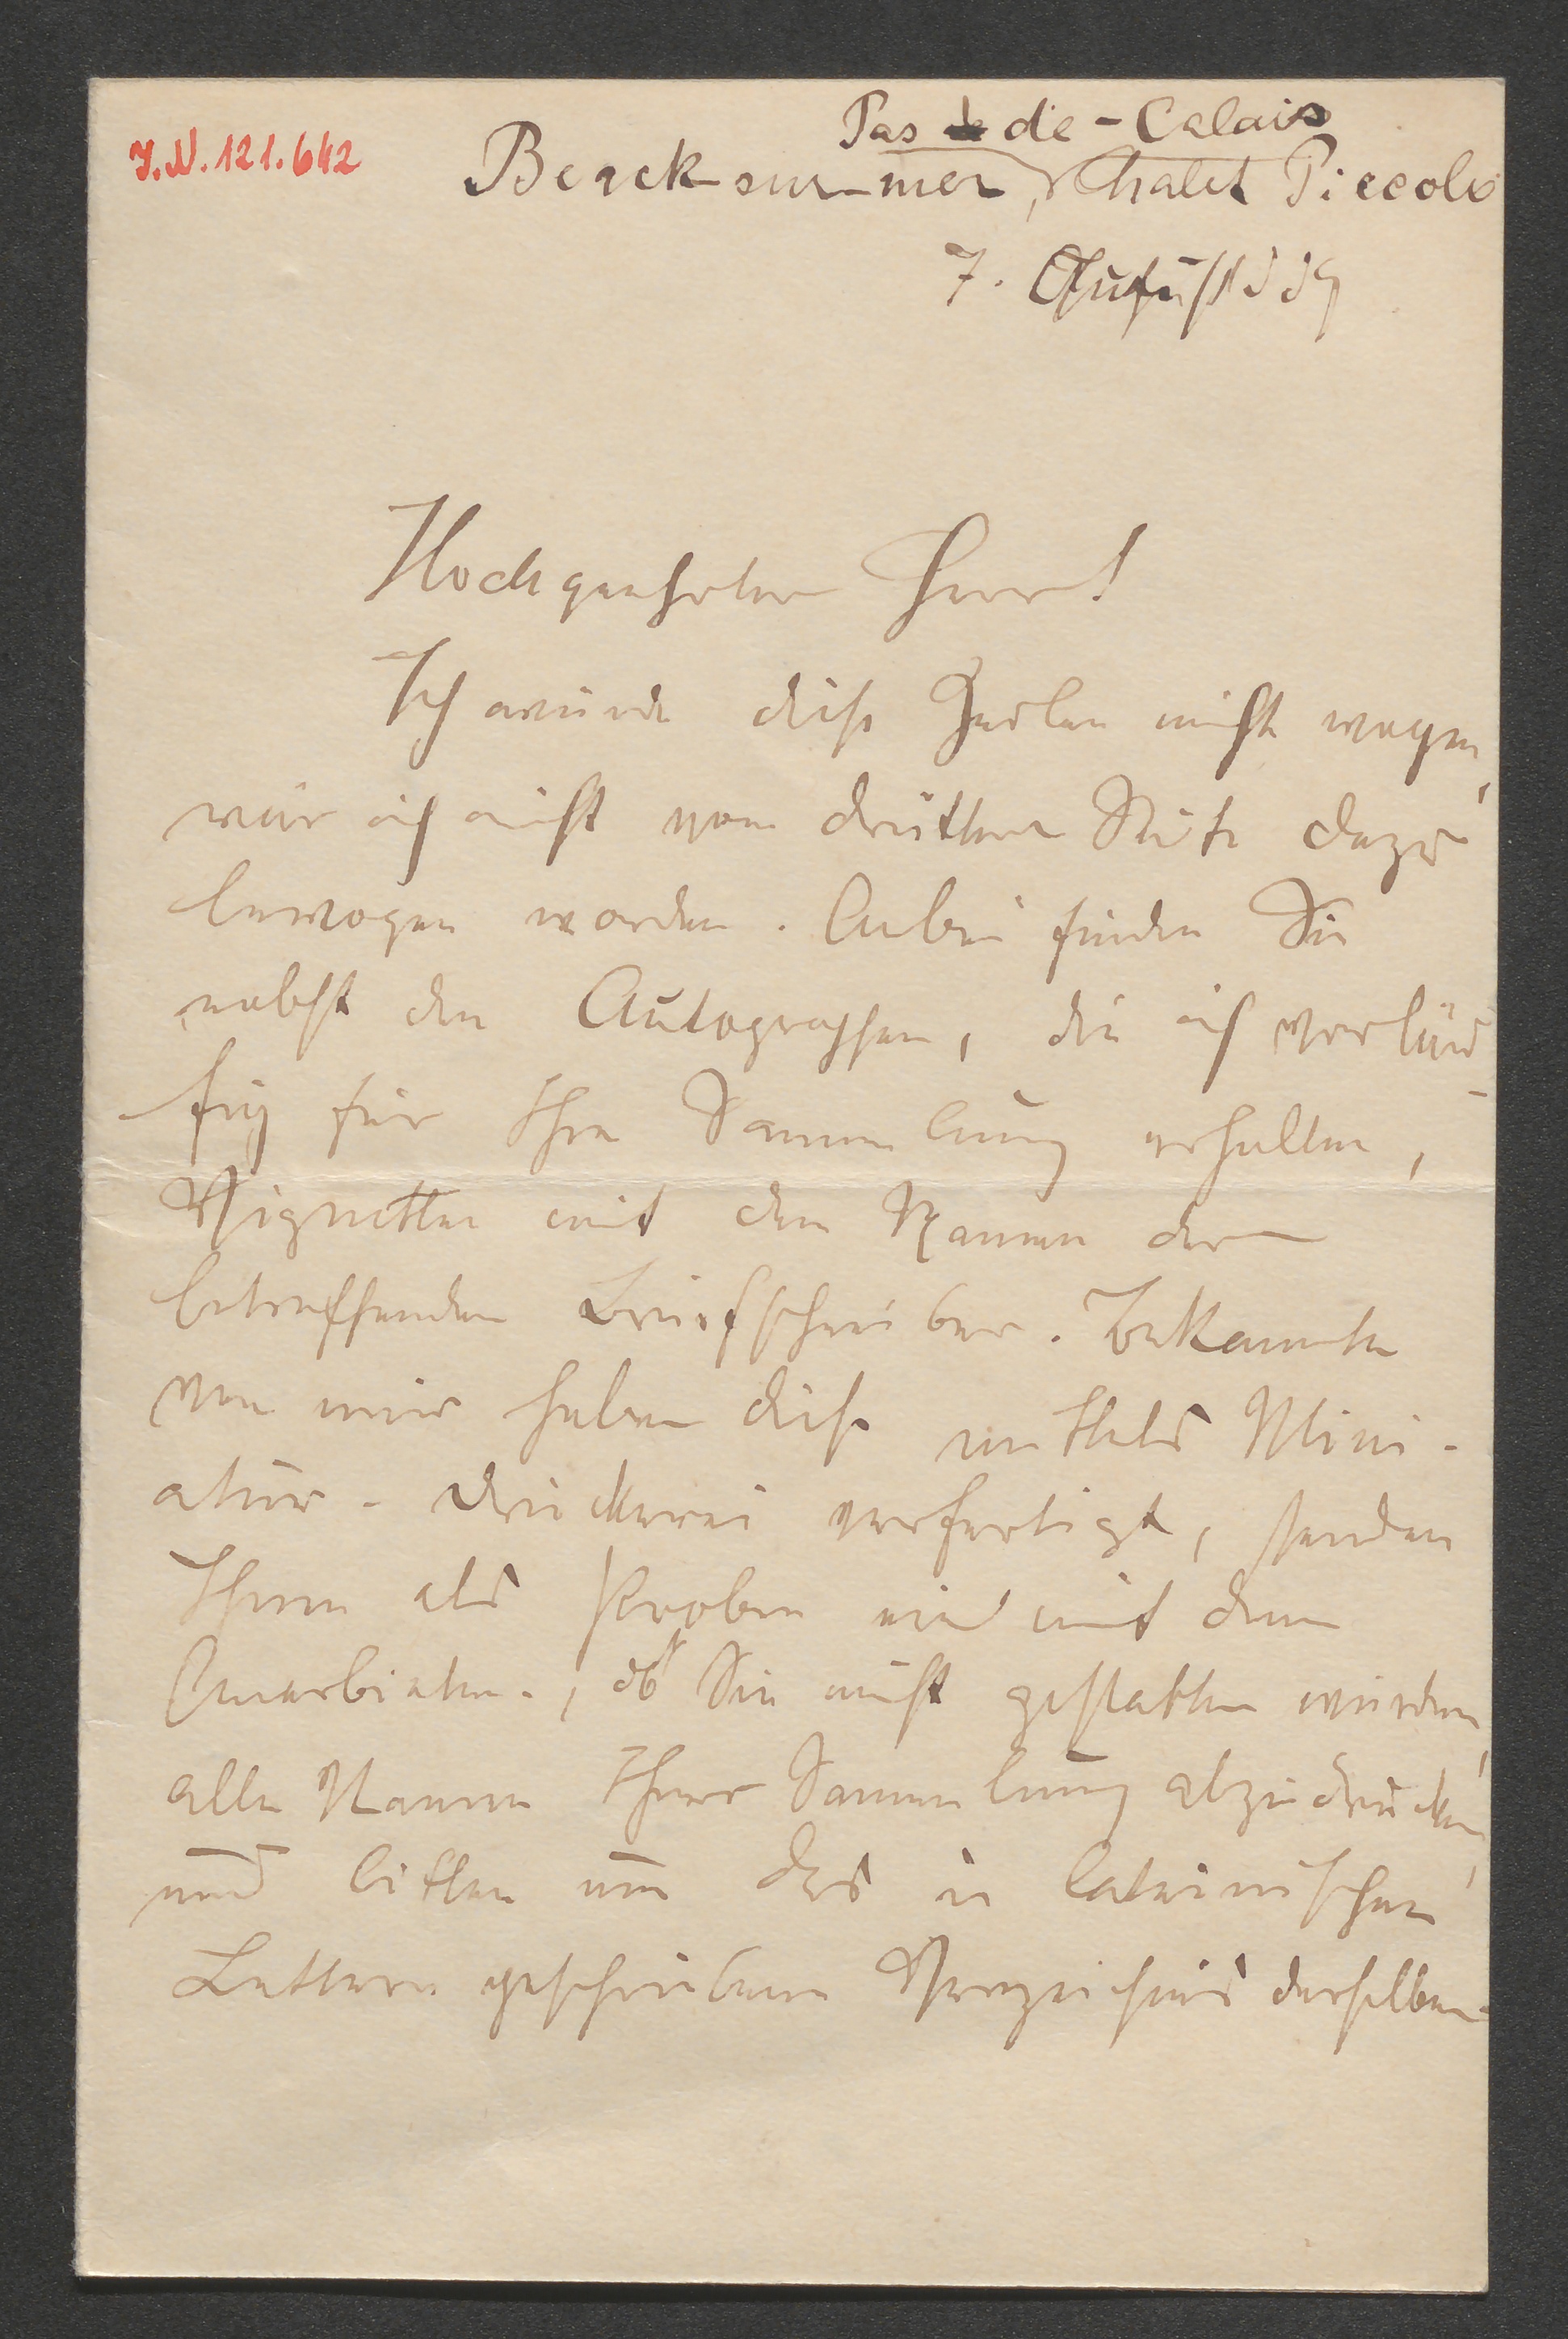 I.N. 121.642
Pas de-Calais
Berck-sur-mer, Chalet Piccolo
7. August 89
Hochgeehrter Herr!
Ich würde diese Zeilen nicht wagen,
wär ich nicht von dritter Seite dazu
bewogen worden. Anbei finden Sie
nebst den Autographen, die ich vorläu-
fig für Ihre Sammlung erhalten,
Vignetten mit den Namen der
betreffenden Briefschreiber. Bekannte
von mir haben diese mittels Mini-
atur-Druckerei verfertigt, senden
Ihnen als Proben ein mit dem
Anerbieten, ob Sie nicht gestatten würden,
alle Namen Ihrer Sammlung abzudrucken,
und bitten um das in lateinischen
Lettern geschriebene Verzeichnis derselben.